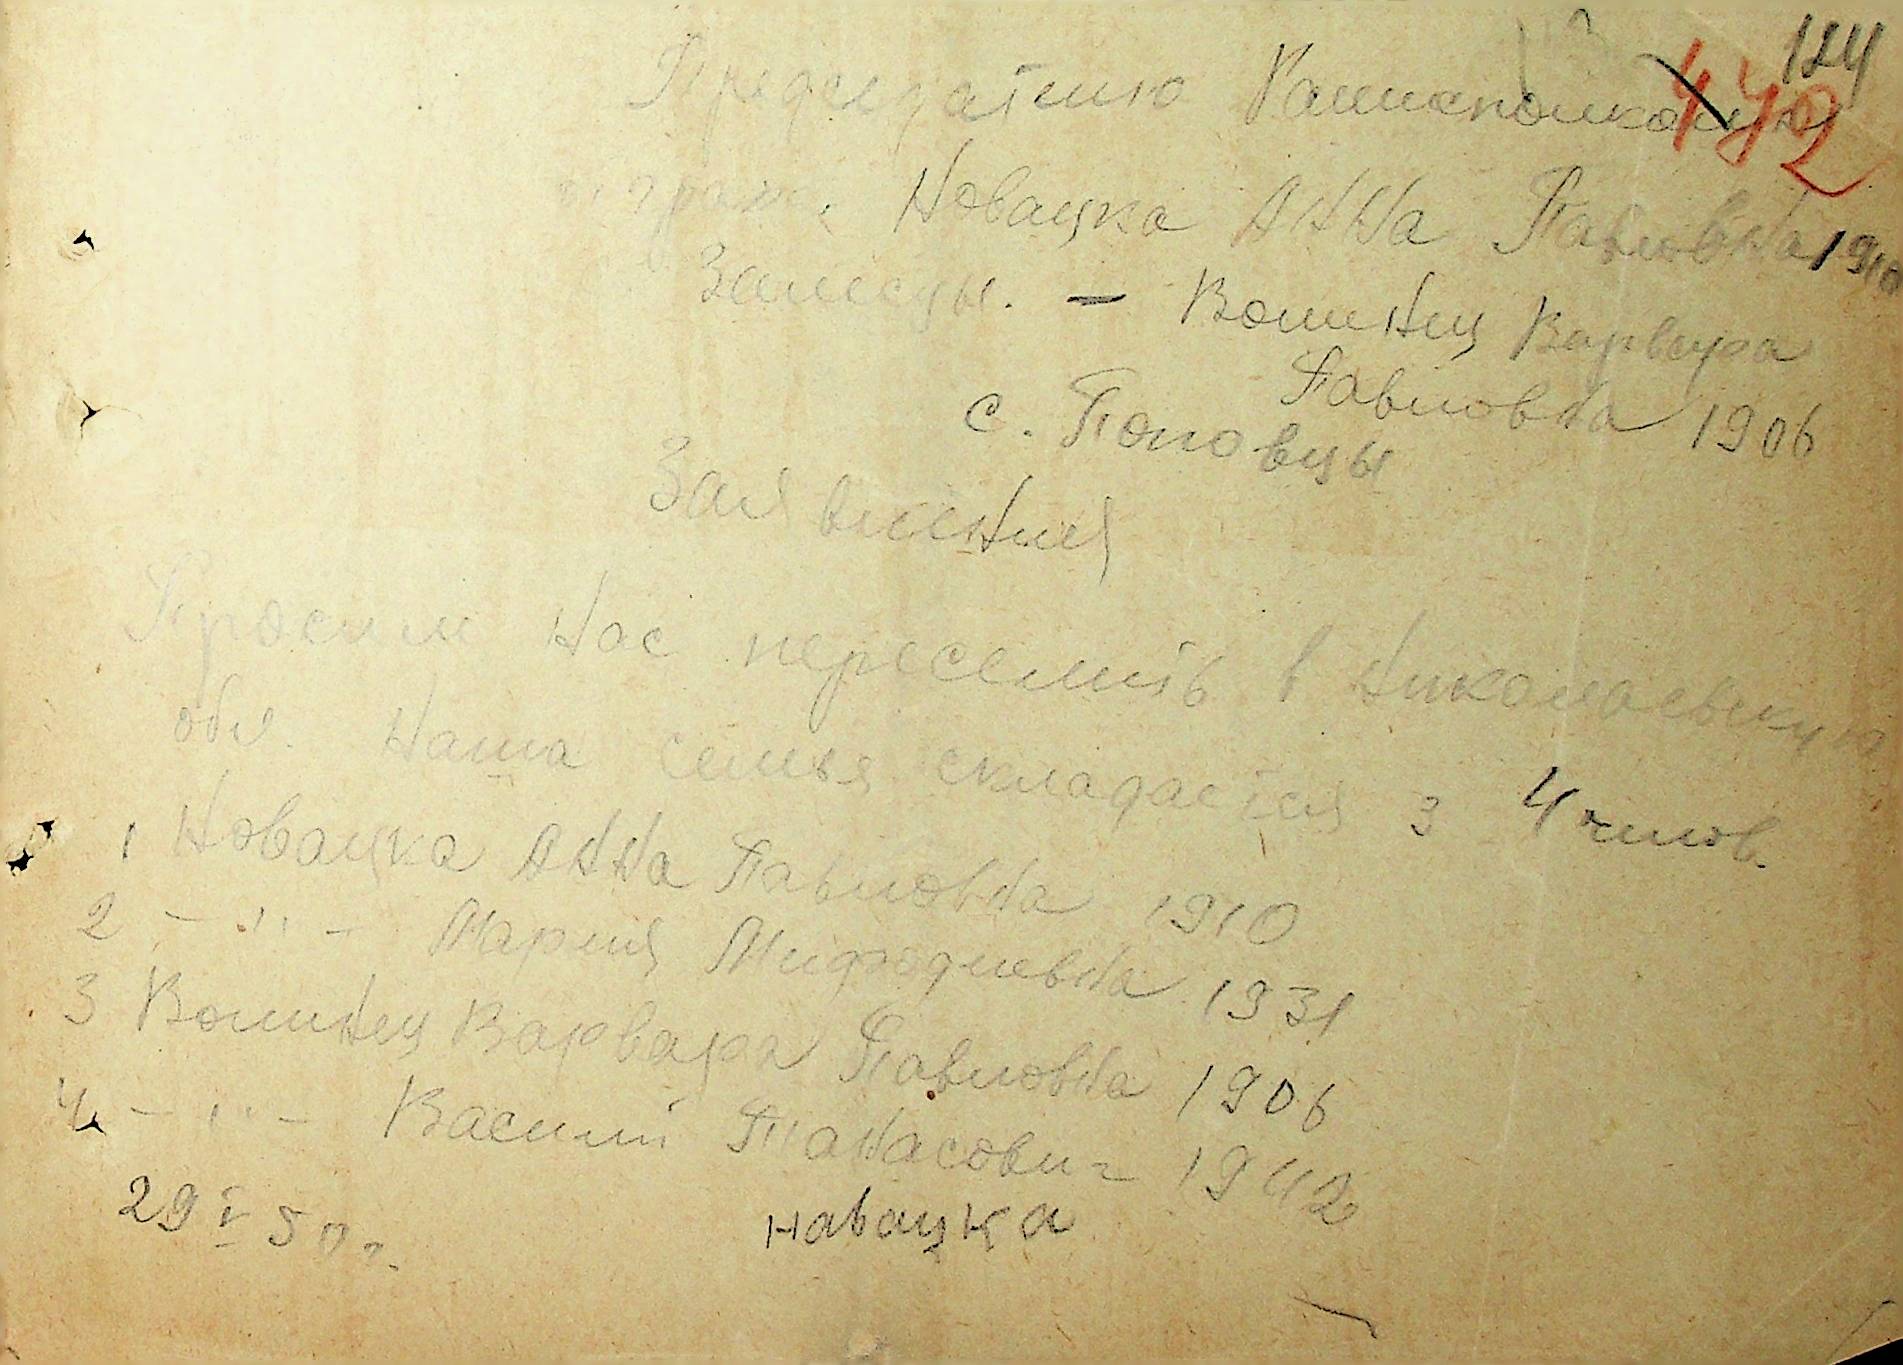 124
472
Председателю Раиисполкома
от граж. Новацка Анна Павловна 1910
Залесцы. – Волинец Варвара
Павловна 1906
с. Поповцы
Заявления
Просим нас переселить в Николаевскую
обл. Наша семья складается з 4 чилов.
1 Новацка Анна Павловна 1910
2 – '' – Мария Мифодиевна 1931
3 Волинец Варвара Павловна 1906
4. – '' – Василий Панасович 1942
29 V 50 г.
навацка